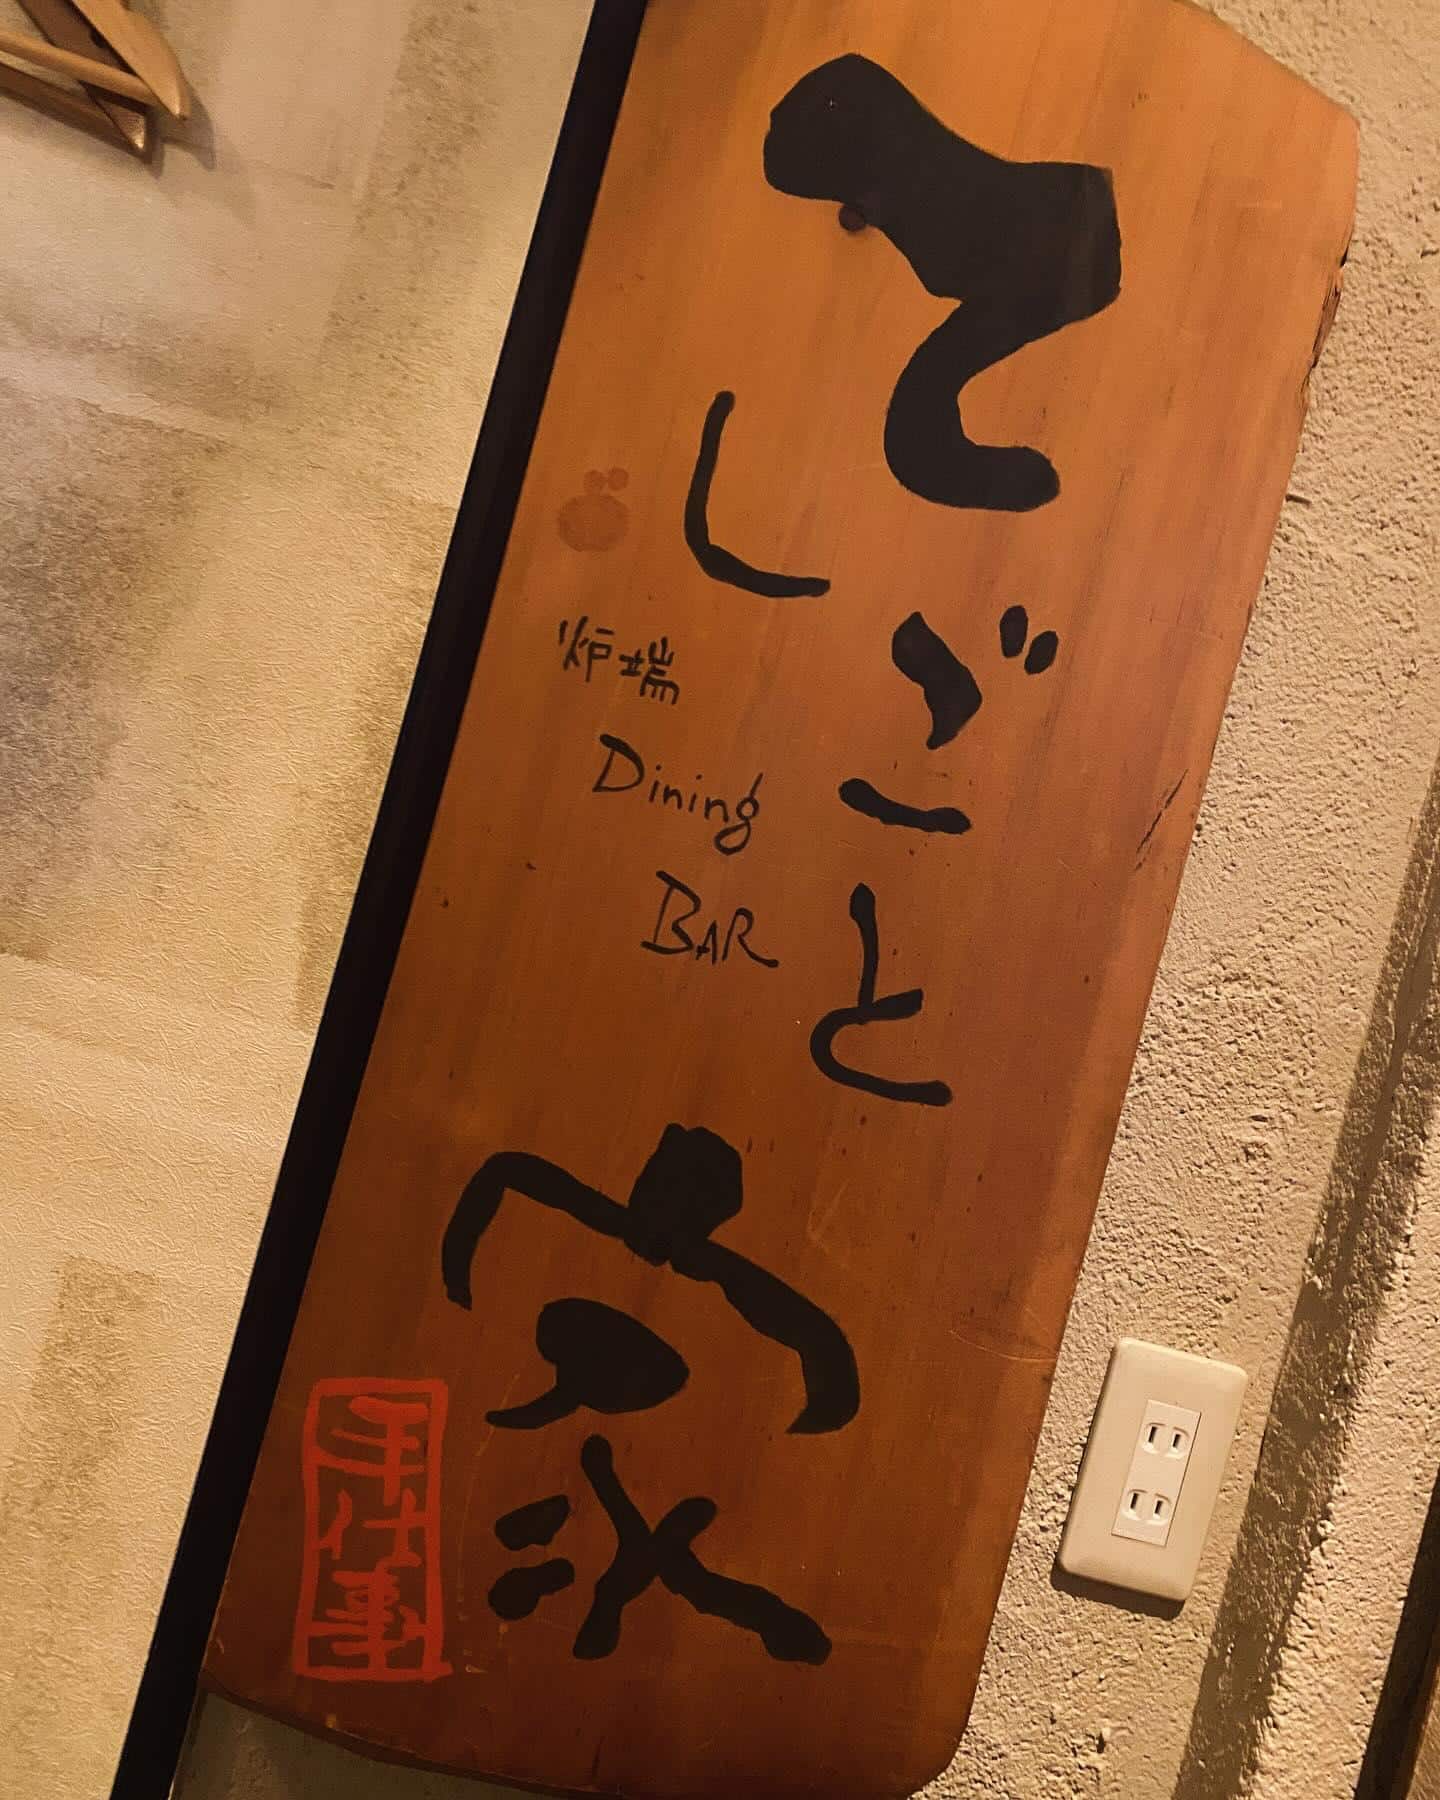 てしごと家
炉端
Dining
BAR
手仕事